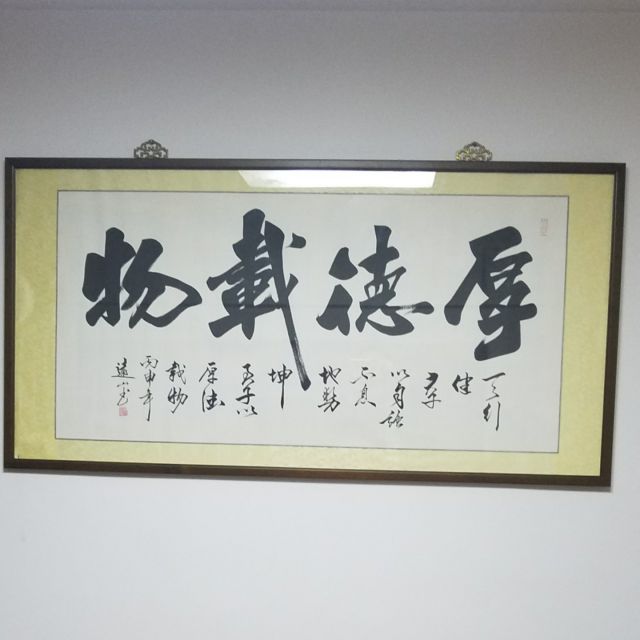 厚德載物
天行
健
君子
以自強
不息
地勢
坤
君子以
厚德
載物
丙申年